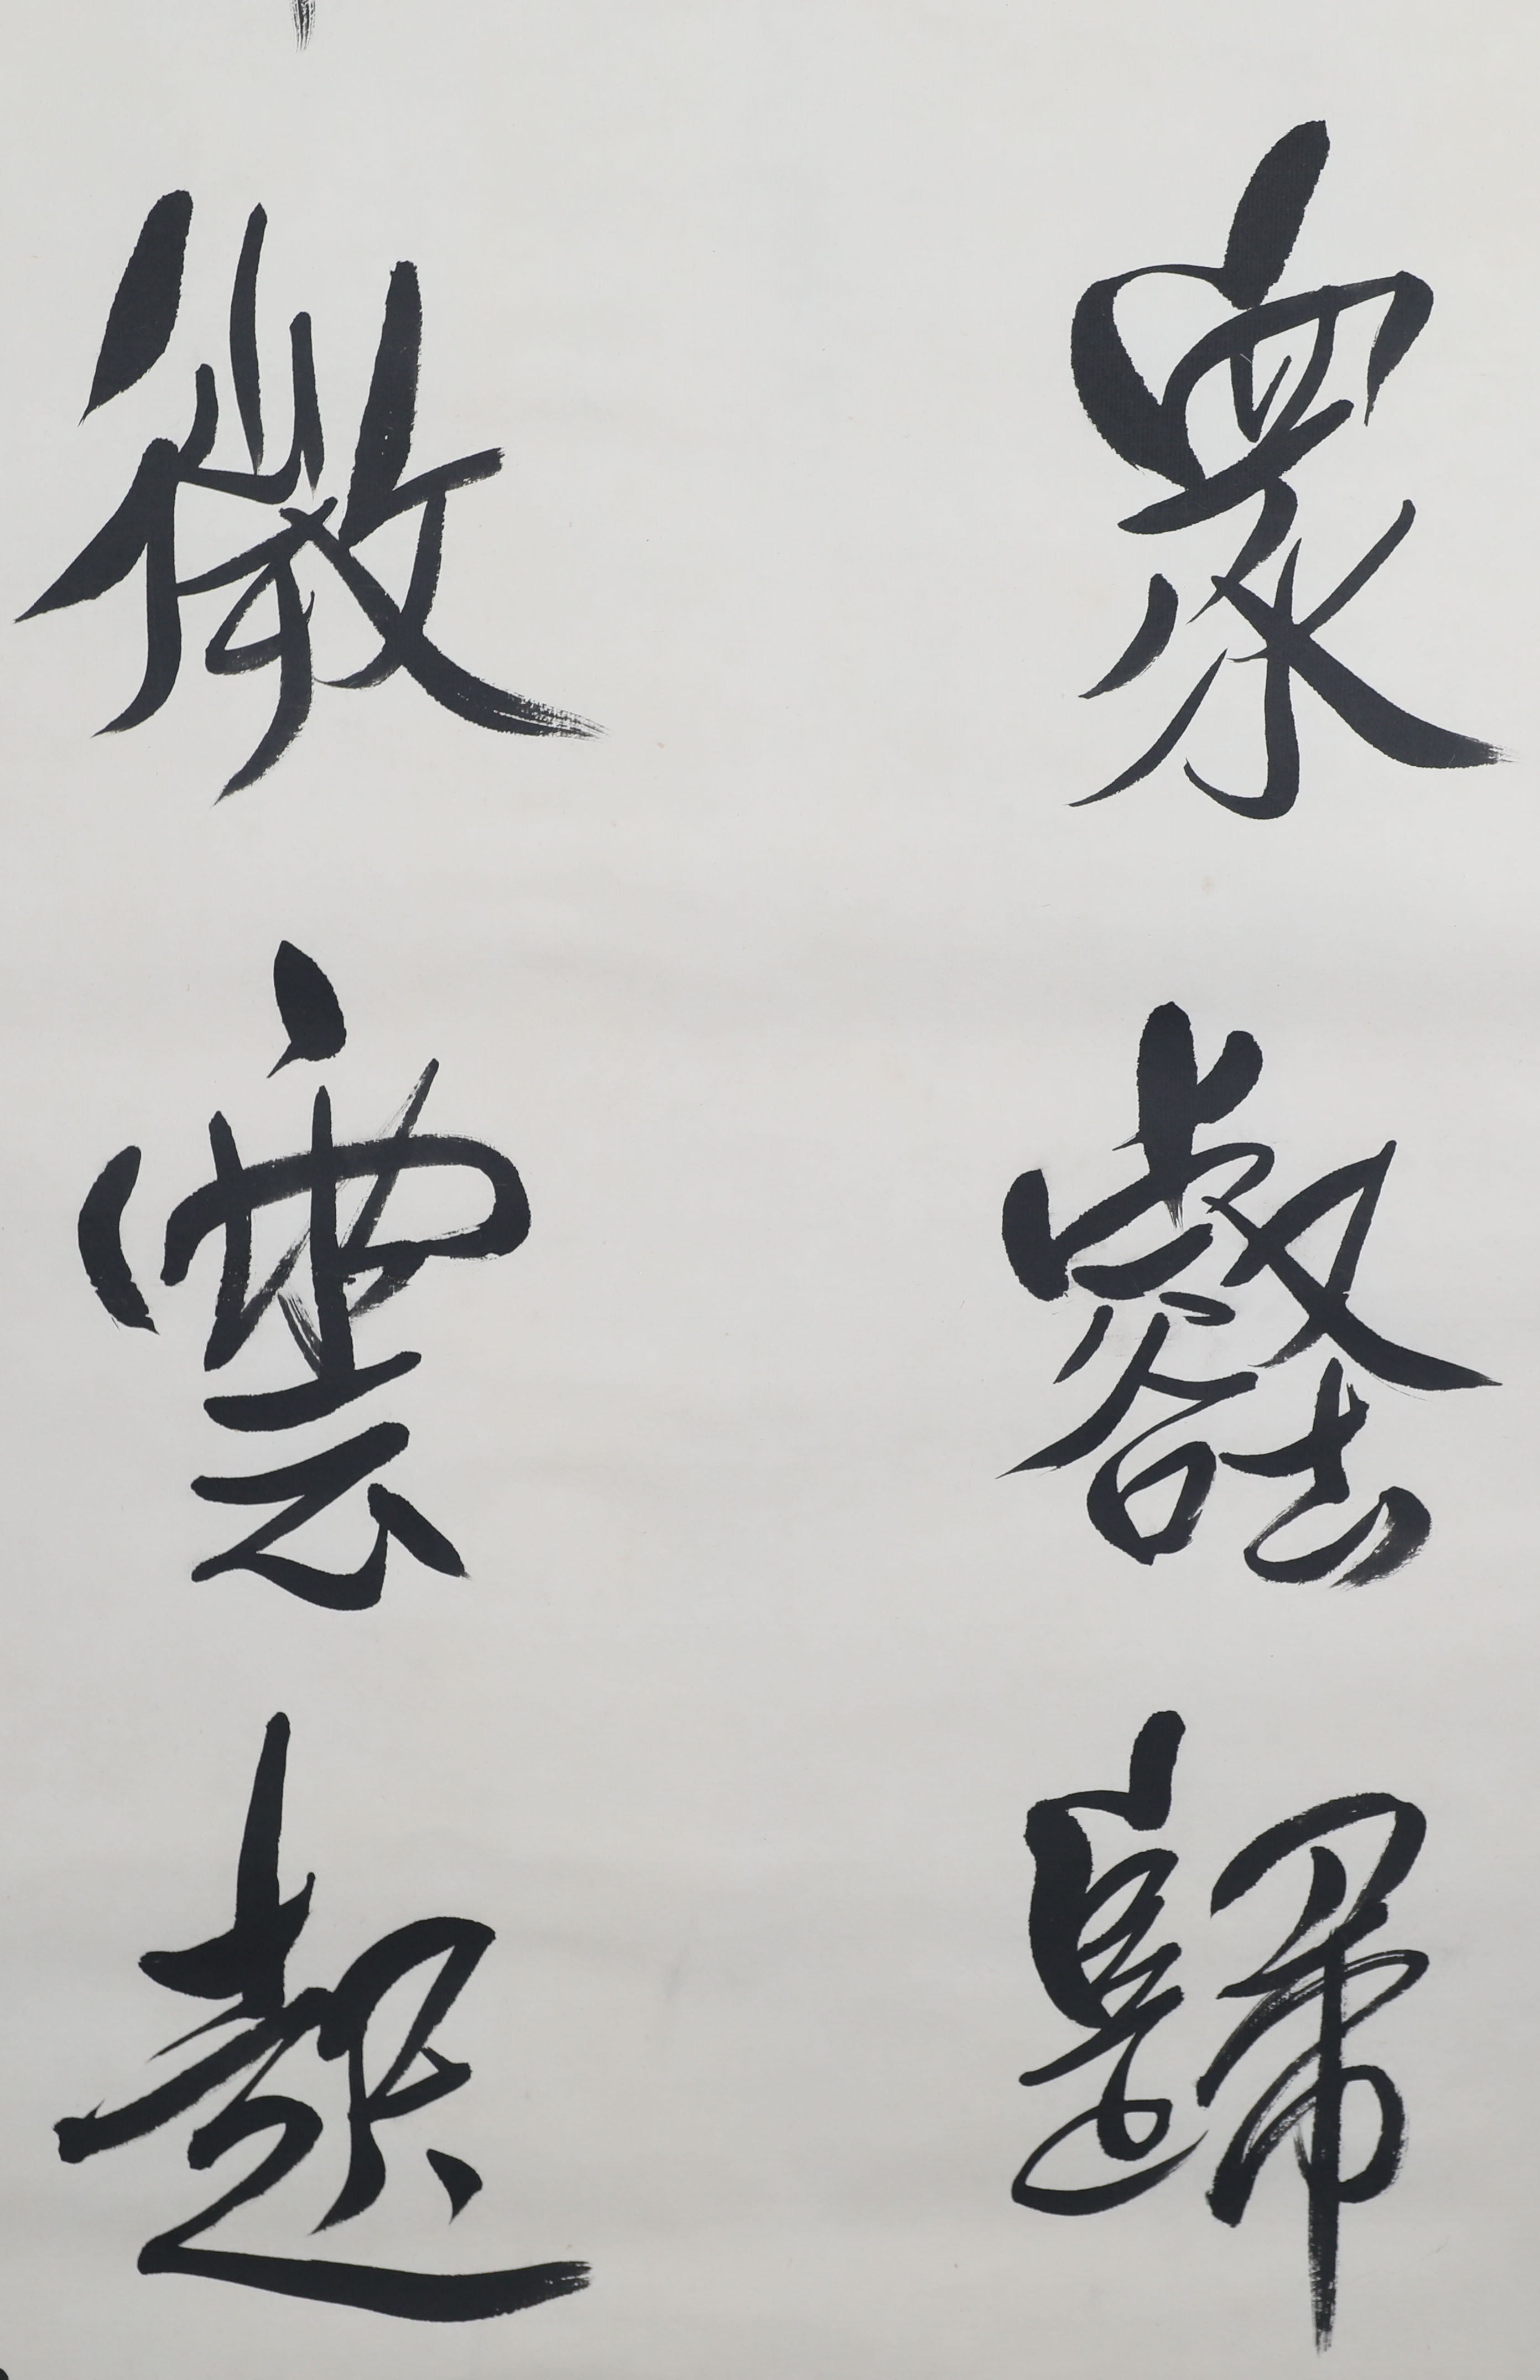 衆壑歸
微雲